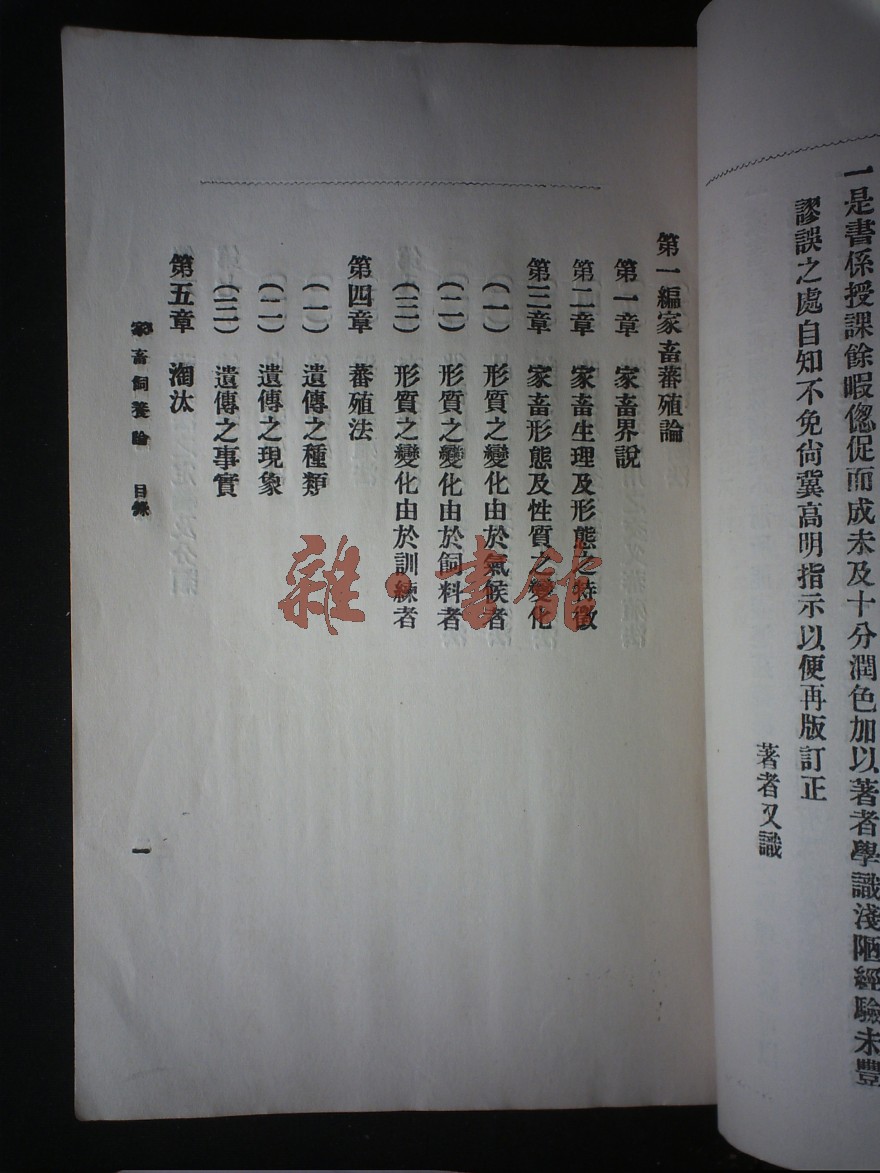 一是書係授課餘暇偬促而成未及十分潤色加以著者學識淺陋經驗未豐
謬誤之處自知不免尙冀高明指示以便再版訂正
著者又識
第一編家畜蕃殖論
第一章 家畜界說
第二章 家畜生理及形態之特徵
第三章 家畜形態及性質之變化
(一) 形質之變化由於氣候者
(二) 形質之變化由於飼料者
(三) 形質之變化由於訓練者
第四章 蕃殖法
(一) 遺傳之種類
(二) 遺傳之現象
(三) 遺傳之事實
第五章 淘汰
家畜飼養論 目錄 一
雜·書館